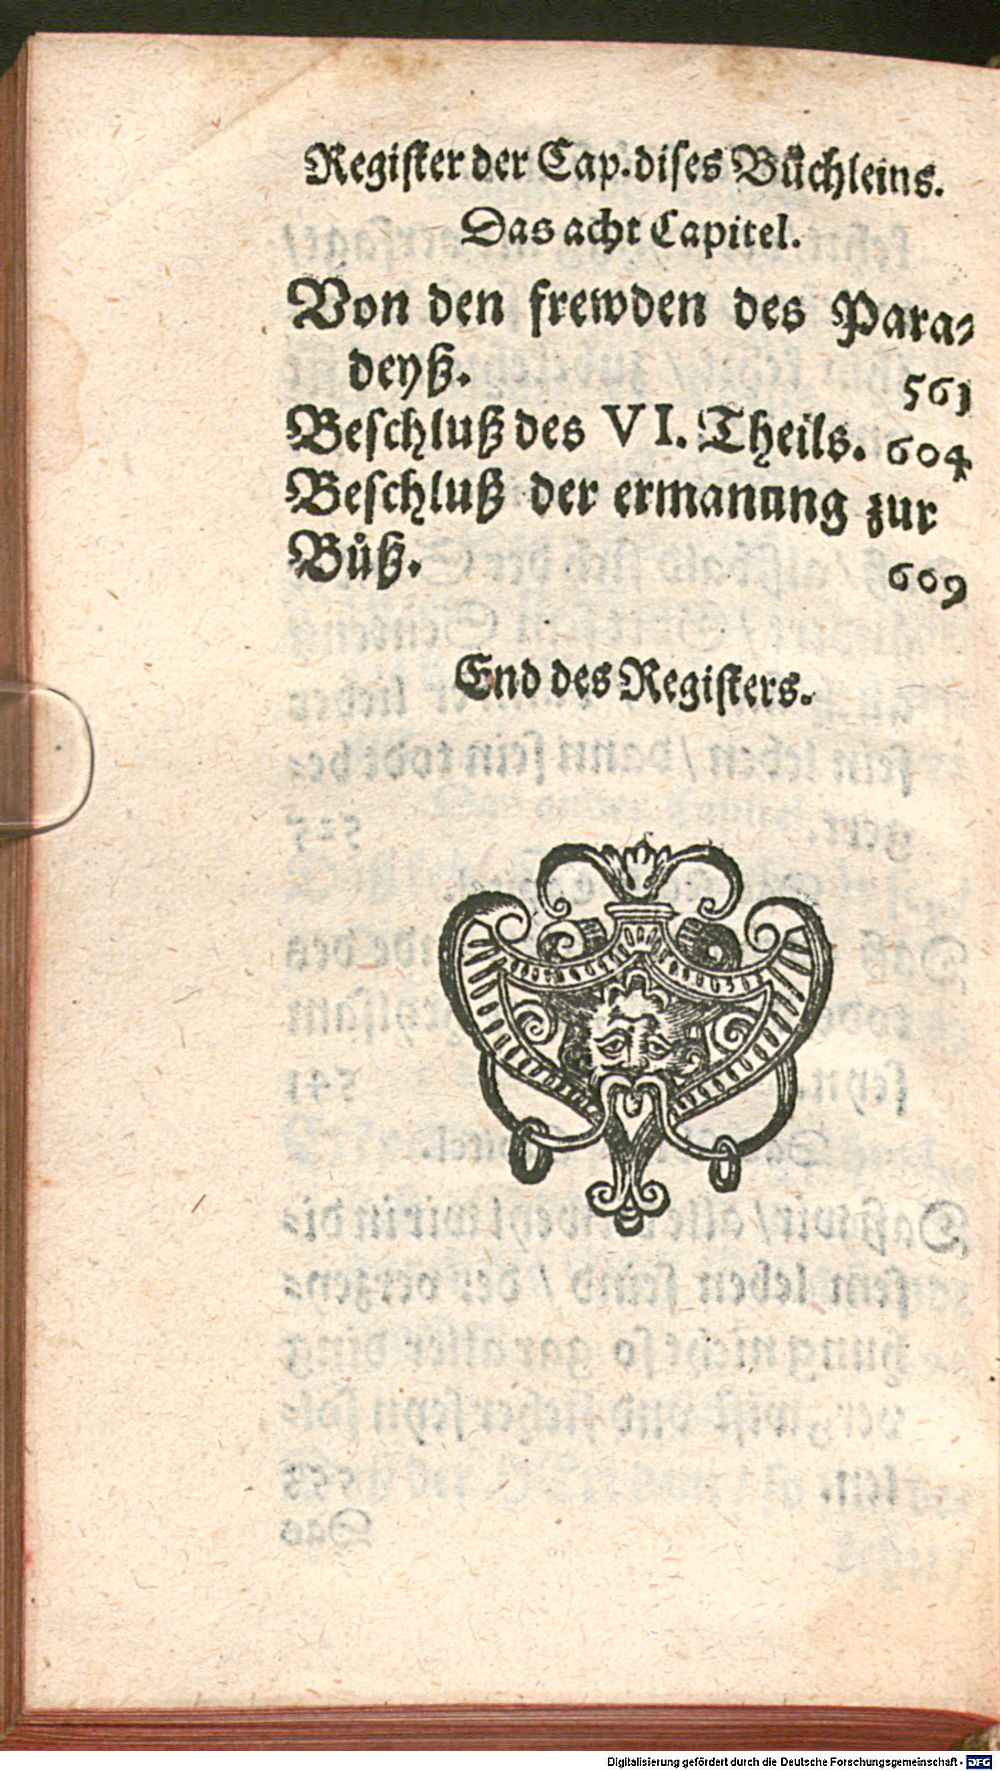 Register der Cap. dises Bůchleins.
Das acht Capitel.
Von den frewden des Para-
deyß. 561
Beschluß des VI. Theils. 604
Beschluß der ermanung zur
Bůß. 609
End des Registers.
Digitalisierung gefördert durch die Deutsche Forschungsgemeinschaft - DFG